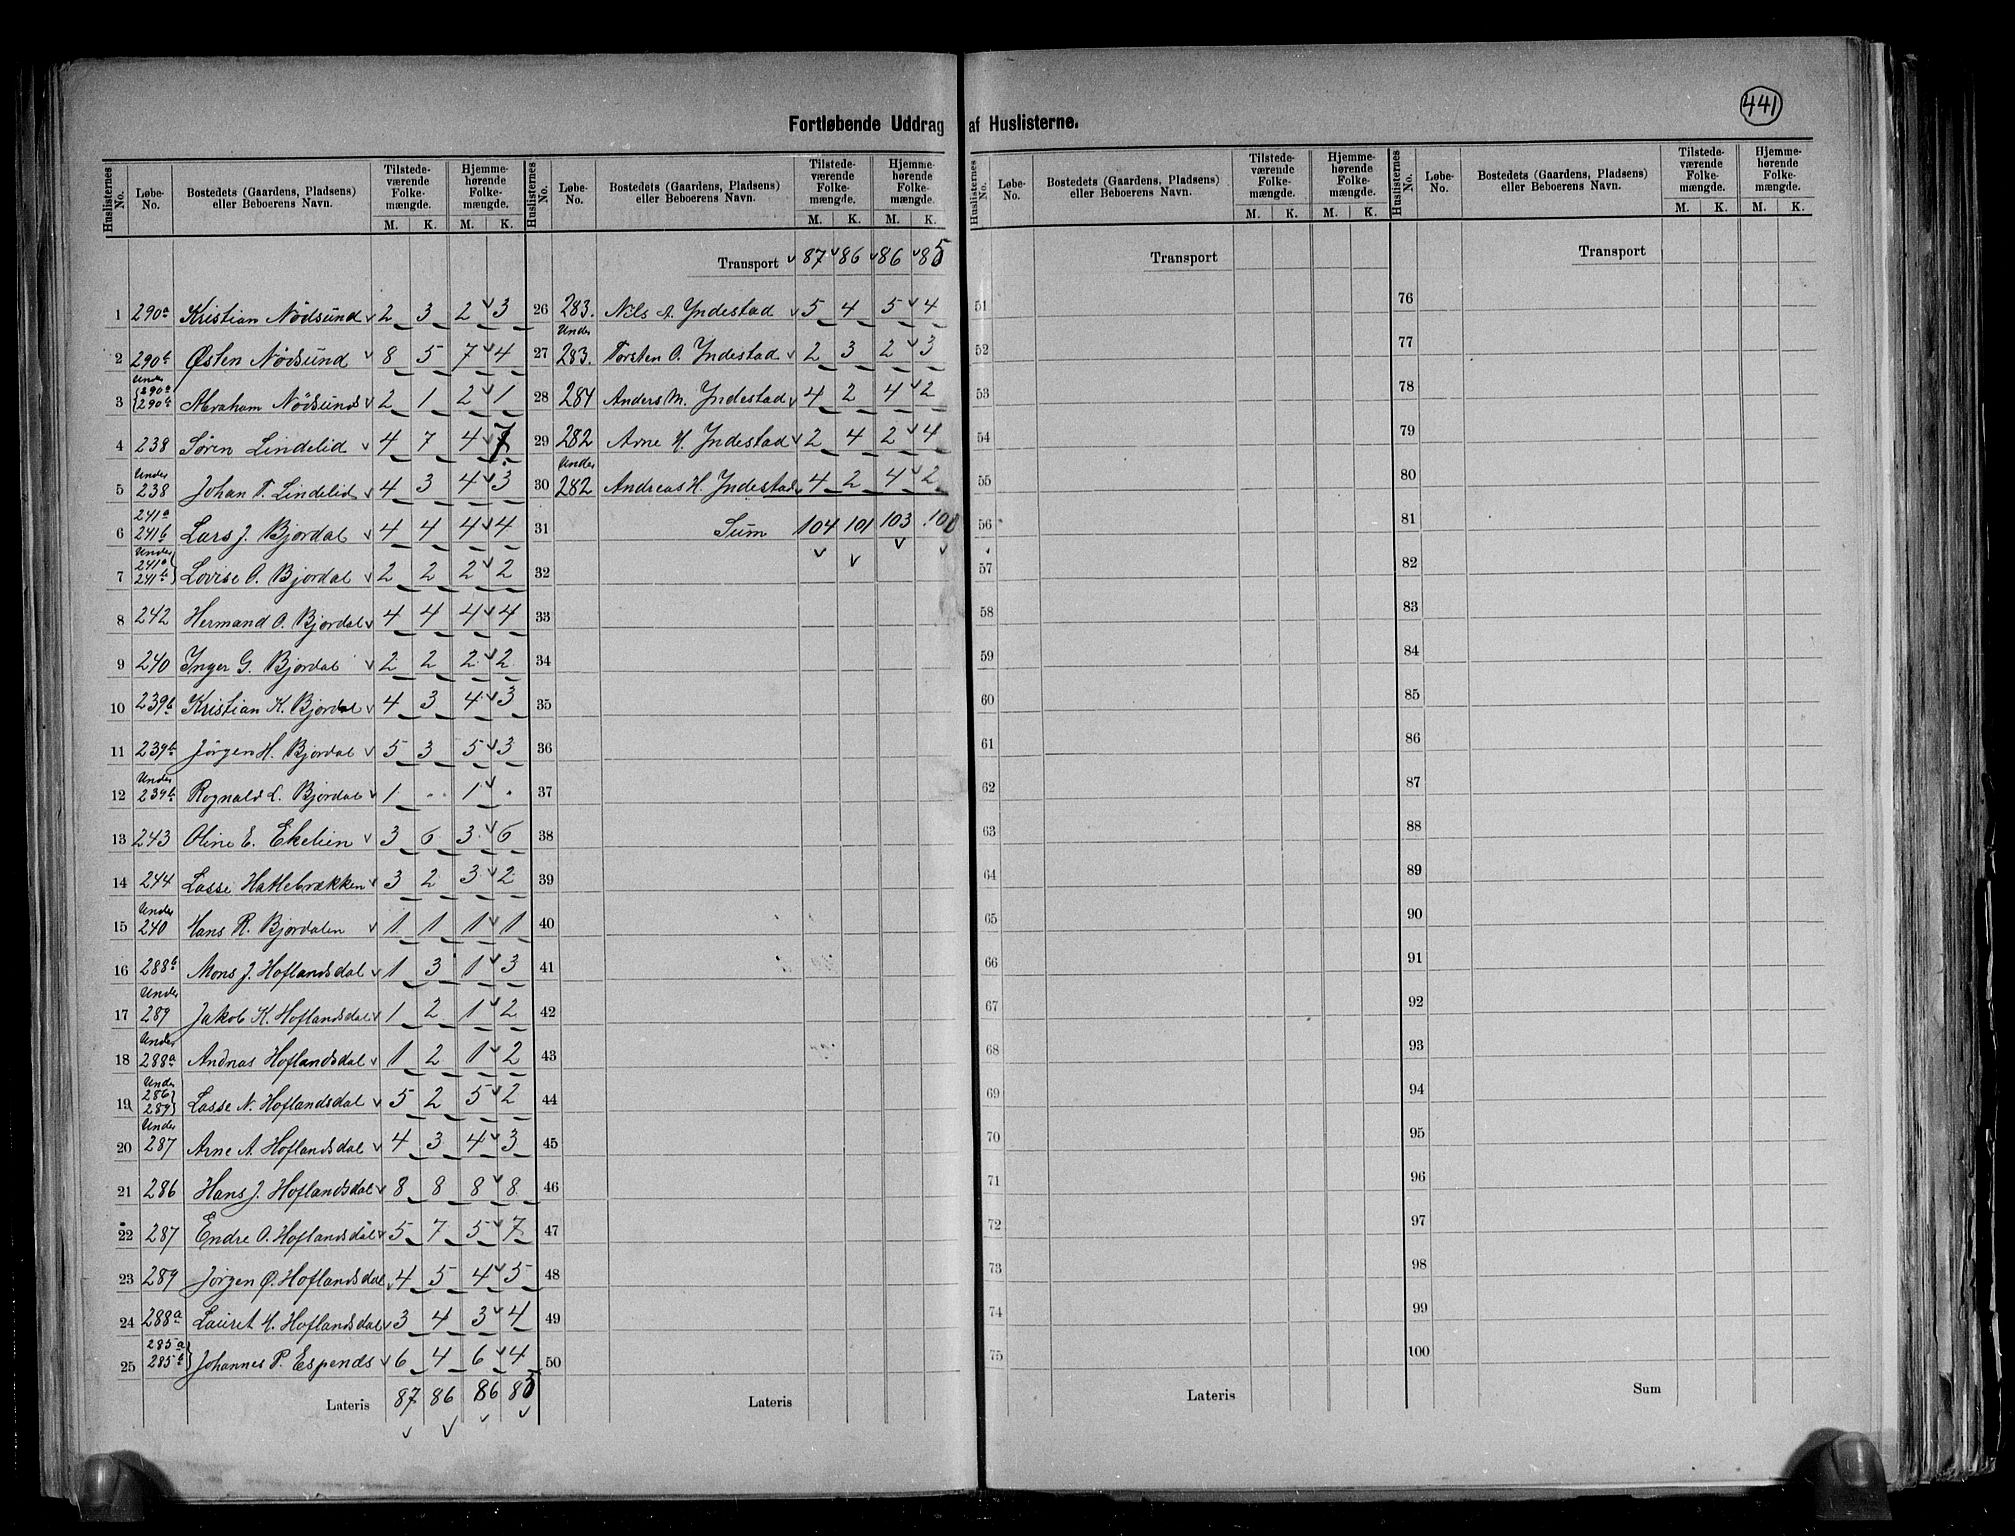 441
Fortløbende Uddrag af Huslisterne.
Huslisternes No. Løbe-No. Bostedets (Gaardens, Pladsens) eller Beboerens Navn. Tilstedeværende Folkemængde. M. K. Hjemmehørende Folkemængde. M. K.
1 290a Kristian Nødsund 2 3 2 3
2 290b Østen Nødsund 8 5 7 4
3 Under 290a 290b Abraham Nödsunds 2 1 2 1
4 238 Søren Lindelid 4 7 4 7
5 Under 238 Johan T. Lindelid 4 3 4 3
6 241a 241b Lars J. Bjordal 4 4 4 4
7 Under 241a 241b Lovise O. Bjordal 2 2 2 2
8 242 Hermand O. Bjordal 4 4 4 4
9 240 Inger G. Bjordal 2 2 2 2
10 239b Kristian K. Bjordal 4 3 4 3
11 239b Jørgen H. Bjordal 5 3 5 3
12 Under 239b Rognald L. Bjørdal 1 - 1 -
13 243 Oline E. Ekelien 3 6 3 6
14 244 Lasse Hattebrækken 3 2 3 2
15 Under 240 Hans R. Bjordalen 1 1 1 1
16 288b Mons J. Hoflandsdal 1 3 1 3
17 Under 289 Jakob K. Hoflandsdal 1 2 1 2
18 Under 288a Andnas Hoflandsdal 1 2 1 2
19 Under 286 289 Lasse N. Hoflandsdal 5 2 5 2
20 Under 287 Arne A. Hoflandsdal 4 3 4 3
21 286 Hans J. Hoflandsdal 8 8 8 8
22 287 Endre O. Hoflandsdal 5 7 5 7
23 289 Jørgen Ø. Hoflandsdal 4 5 4 5
24 288a Lauret H. Hoflandsdal 3 4 3 4
25 285a 285b Johannes P. Espends 6 4 6 4
Lateris 87 86 86 85
Huslisternes No. Løbe-No. Bostedets (Gaardens, Pladsens) eller Beboerens Navn. Tilstedeværende Folkemængde. M. K. Hjemmehørende Folkemængde. M. K.
Transport 87 86 86 85
26 283. Nils A. Yndestad 5 4 5 4
27 Under 283. Torsten O. Yndestad 2 3 2 3
28 284 Anders M. Yndestad 4 2 4 2
29 282 Arne H. Yndestad 2 4 2 4
30 Under 282 Andreas H. Yndestad 4 2 4 2
31 Sum 104 101 103 100
32
33
34
35
36
37
38
39
40
41
42
43
44
45
46
47
48
49
50
Lateris
Huslisternes No. Løbe-No. Bostedets (Gaardens, Pladsens) eller Beboerens Navn. Tilstedeværende Folkemængde. M. K. Hjemmehørende Folkemængde. M. K.
Transport
51
52
53
54
55
56
57
58
59
60
61
62
63
64
65
66
67
68
69
70
71
72
73
74
75
Lateris
Huslisternes No. Løbe-No. Bostedets (Gaardens, Pladsens) eller Beboerens Navn. Tilstedeværende Folkemængde. M. K. Hjemmehørende Folkemængde. M. K.
Transport
76
77
78
79
80
81
82
83
84
85
86
87
88
89
90
91
92
93
94
95
96
97
98
99
100
Sum